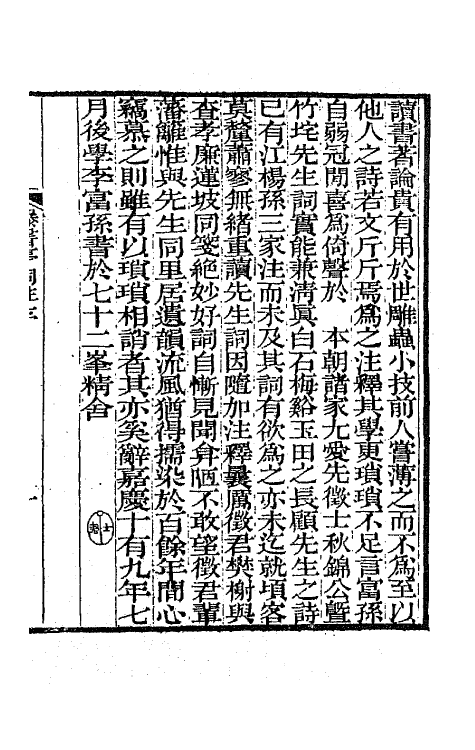 讀書著論貴有用於世雕蟲小技前人嘗薄之而不爲至以
他人之詩若文斤斤焉爲之注釋其學更瑣瑣不足言富孫
自弱冠閒喜爲倚聲於　本朝諸家尤愛先徵士秋錦公曁
竹垞先生詞實能兼淸眞白石梅谿玉田之長顧先生之詩
已有江楊孫三家注而未及其詞有欲爲之亦未迄就頃客
莫釐蕭寥無緒重讀先生詞因隨加注釋曩厲徵君樊榭與
查孝廉蓮坡同箋絶妙好詞自慚見聞弇陋不敢望徵君輩
藩籬惟與先生同里居遺韻流風猶得擩染於百餘年間心
竊慕之則雖有以瑣瑣相誚者其亦奚辭嘉慶十有九年七
月後學李富孫書於七十二峯精舍